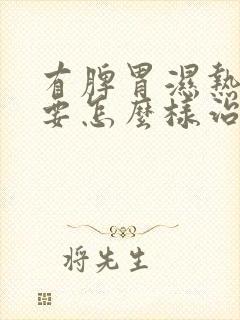 有脾胃濕熱
要怎麼樣治
將先生